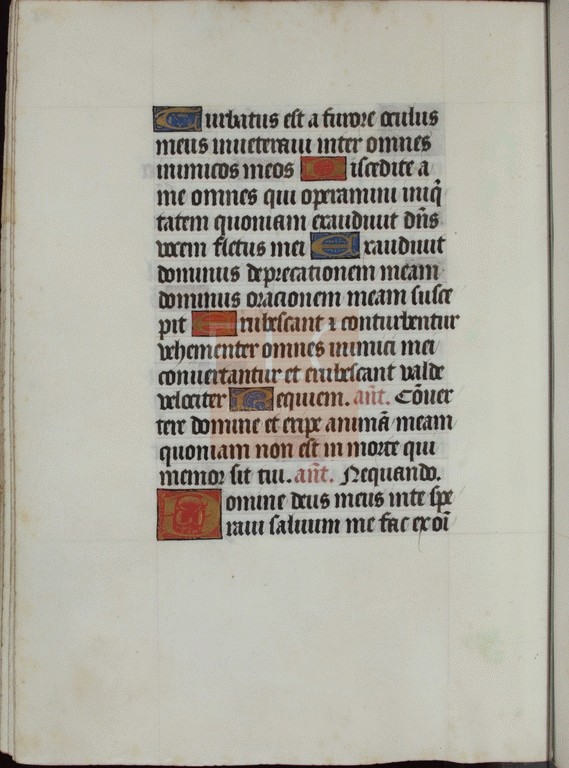 Turbatus est a furore oculus
meus inueteraui inter omnes
inimicos meos Discedite a
me omnes qui operamini iniq̄
tatem quoniam exaudiuit dn̄s
vocem fletus mei Exaudiuit
dominus deprecationem meam
dominus oracionem meam susce
pit Erubescant ⁊ conturbentur
vehementer omnes inimici mei
conuertantur et erubescant valde
velociter Requiem. an̄t. Cōuer
tere domine et eripe animā meam
quoniam non est in morte qui
memor sit tui. an̄t. Nequando.
Domine deus meus inte spe
raui saluum me fac ex oī